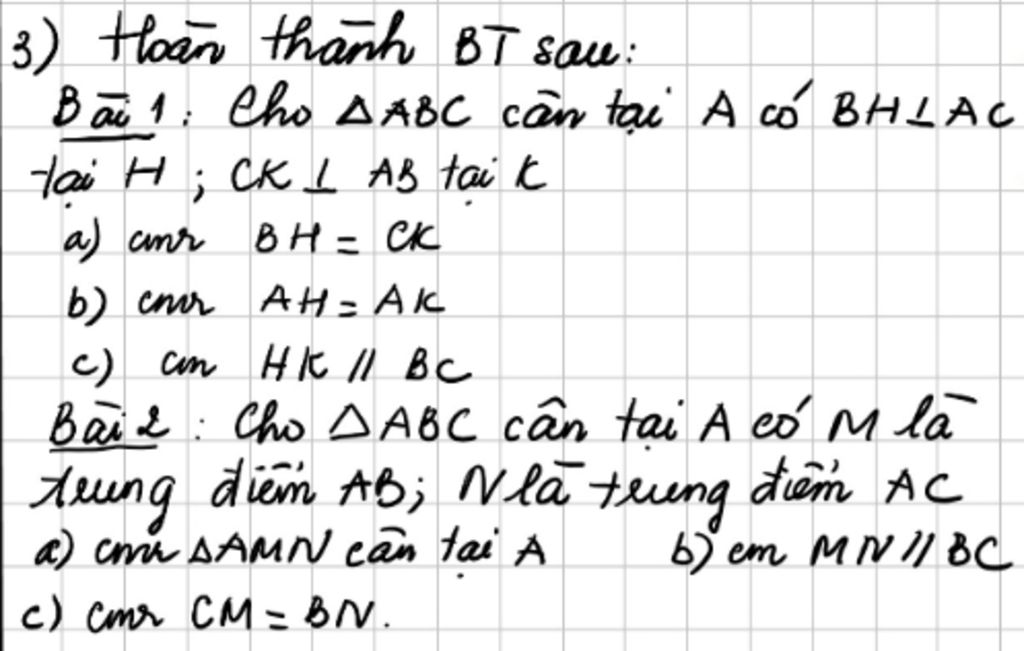 3) Hoàn thành BT sau:
Bài 1: Cho △ABC cân tại A có BH⊥AC
tại H ; CK ⊥ AB tại K
a) cmr BH = CK
b) cmr AH = AK
c) cm HK // BC
Bài 2 : Cho △ABC cân tại A có M là
trung điểm AB; N là trung điểm AC
a) cmr △AMN cân tại A b) cm MN // BC
c) cmr CM = BN.